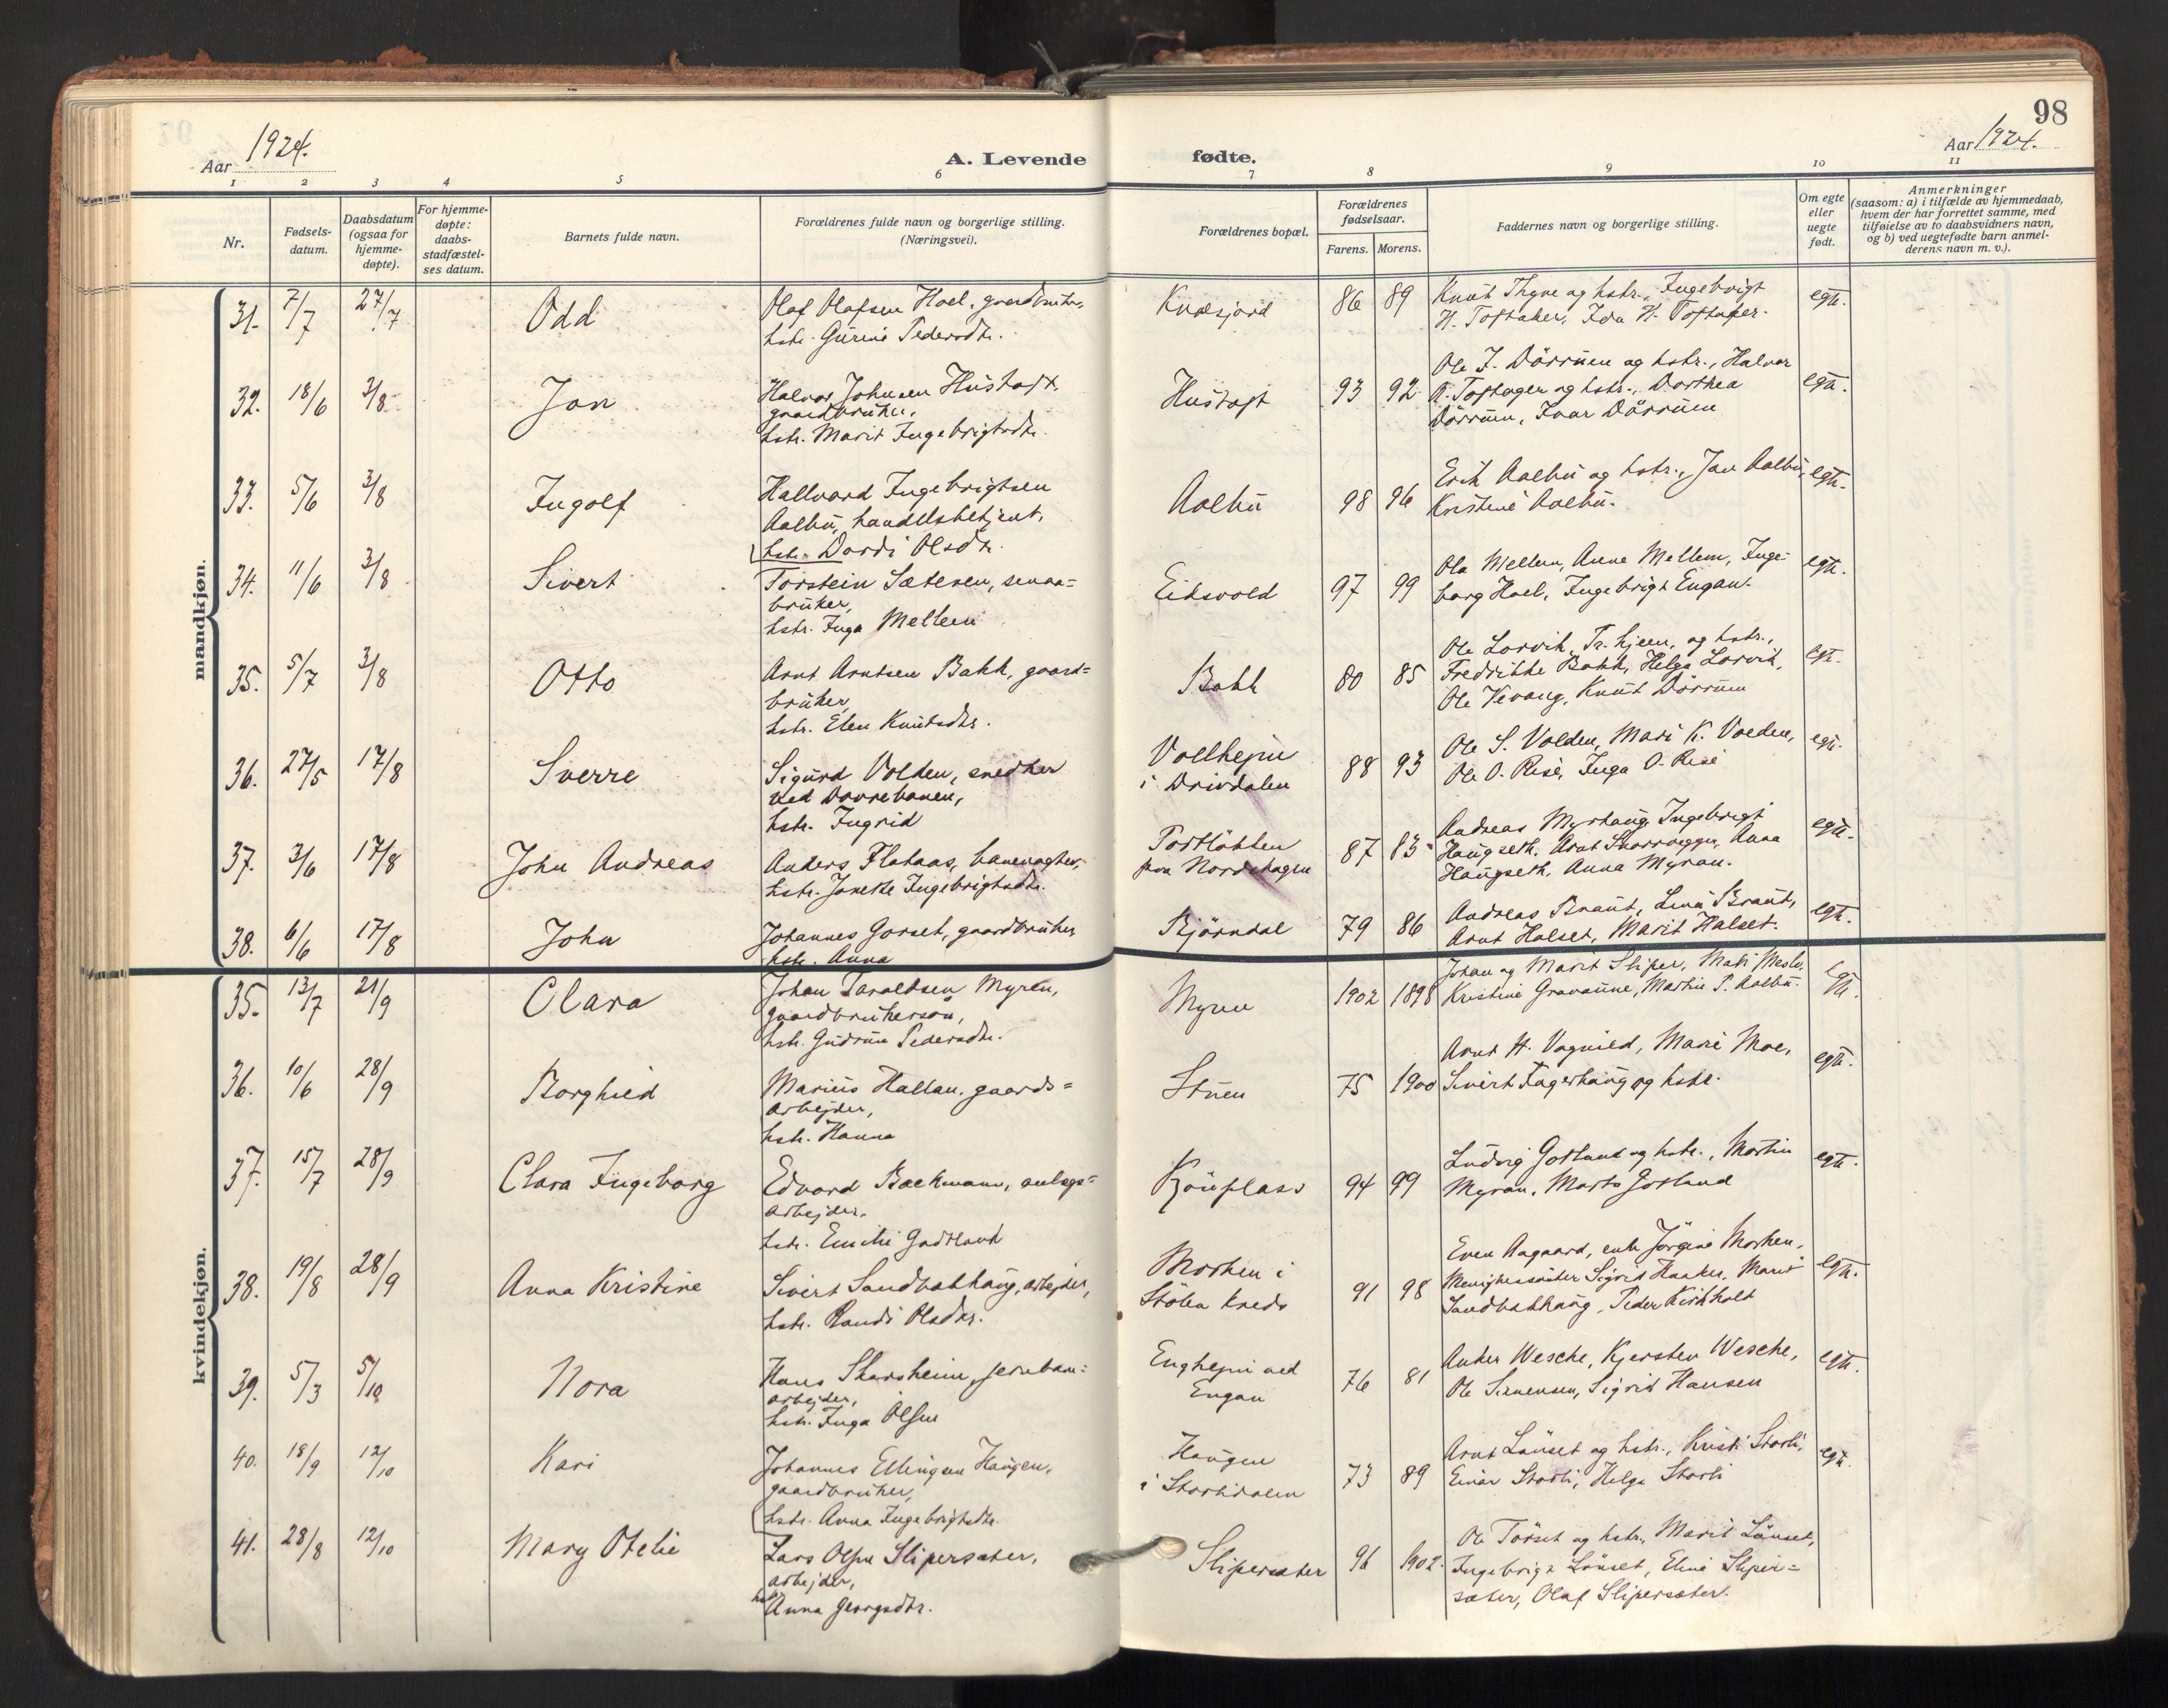 98
Aar 1924.
A. Levende fødte.
Aar 1924.
1 2 3 4 5 6 7 8 9 10 11
Nr.
Fødsels-
datum.
Daabsdatum
(ogsaa for
hjemme-
døpte).
For hjemme-
døpte:
daabs-
stadfæstel-
ses datum.
Barnets fulde navn.
Forældrenes fulde navn og borgerlige stilling.
(Næringsvei).
Forældrenes bopæl.
Forældrenes
fødselsaar.
Farens. Morens.
Faddernes navn og borgerlige stilling.
Om egte
eller
uegte
født.
Anmerkninger
(saasom: a) i tilfælde av hjemmedaab,
hvem der har forrettet samme, med
tilføielse av to daabsvidners navn,
og b) ved uegtefødte barn anmel-
derens navn m. v.).
mandkjøn.
31. 7/7 27/7 Odd
Olaf Olafsen Hoel, gaardbruker,
hstr. Gurine Pedersdtr.
86 89
Knut Thyve og hstr., Ingebrigt
H. Toftaker, Ida H. Toftaker.
egte.
32. 18/6 3/8 Jon
Halvor Johnsen Hustoft,
gaardbruker,
hstr. Marit Ingebrigtsdtr.
Hustoft 93 92
Ole J. Dörrum og hstr., Halvor
O. Toftager og hstr., Dorthea
Dörrum, Ivar Dörrum
egte.
33. 5/6 3/8 Ingolf
Hallvard Ingebrigtsen
Aalbu, handelsbetjent,
hstr. Dordi Olsdtr.
Aalbu 98 96
Erik Aalbu og hstr., Jan Aalbu,
Kristine Aalbu.
egte.
34. 11/6 3/8 Sivert
Torstein Sæteren, smaa=
bruker,
hstr. Inga Mellem
Eidsvold 97 99
Ola Mellem, Anne Mellem, Inge-
borg Hoel, Ingebrigt Engan.
egte.
35. 5/7 3/8 Otto
Arnt Arntsen Bakk, gaard=
bruker,
hstr. Elen Knutsdtr.
Bakk 80 85
Ole Lorvik, Tr.hjem, og hstr.,
Fredrikke Bakk, Helga Lorvik,
Ole Vevang, Knut Dörrum
egte.
36. 27/5 17/8 Sverre
Sigurd Volden, snedker
ved Dovrebanen,
hstr. Ingrid
Vollheim
i Drivdalen 88 93
Ole S. Volden, Mari K. Volden,
Ole O. Rise, Inga O. Rise
egte.
37. 3/6 17/8 John Andreas
Anders Flataas, banevogter,
hstr. Janette Ingebrigtsdtr.
paa Nordskogen 87 83
Andreas Myrhaug, Ingebrigt
Haugseth, Arnt Skorrvegger, Anna
Haugseth, Anna Myran.
egte.
38. 6/6 17/8 John
Johannes Gorset, gaardbruker
hstr. Anna
Björndal 79 86
Andreas Braut, Lina Braut,
Arnt Halset, Marit Halset.
egte.
kvindekjøn.
35. 13/7 21/9 Clara
Johan Taraldsen Myren,
gaardbrukersøn,
hstr. Gudrun Pedersdtr.
Myren 1902 1898
Johan og Marit Sliper, Mali Meslo,
Kristine Gravaune, Martin P. Aalbu.
egte.
36. 10/6 28/9 Borghild
Marius Hallan, gaards=
arbejder,
hstr. Hanna
Stuen 75 1900
Arnt H. Vognild, Mari Moe,
Sivert Fagerhaug og hstr.
egte.
37. 15/7 28/9 Clara Ingeborg
Edvard Backmann, anlægs=
arbejder,
hstr. Emilie Gotland
94 99
Ludvig Gotland og hstr., Martin
Myran, Marta Gotland
egte.
38. 19/8 28/9 Anna Kristine
Sivert Sandbakhaug, arbejder,
hstr. Randi Olsdtr.
Morken i
Stölen kreds 91 98
Even Aagaard, enke Jörgine Morken,
Menighetssöster Sigrid Haaker, Marit
Sandbakhaug, Peder Kirkholt
egte.
39. 5/3 5/10 Nora
Hans Skarsheim, jernban=
arbejder,
hstr. Inga Olsen
Engheim ved
Engan 76 81
Anker Wesche, Kjersten Wesche,
Ole Simensen, Sigrid Hansen
egte.
40. 18/9 12/10 Kari
Johannes Ellingsen Haugen,
gaardbruker,
hstr. Anna Ingebrigtsdtr.
Haugen
i Storlidalen 73 89
Arnt Lönset og hstr., Kristi Storli,
Einar Storli, Helga Storli
egte.
41. 28/8 12/10 Mary Otelie
Lars Olsen Slipersæter,
arbejder,
hstr. Anna Georgsdtr.
Slipersæter 96 1902.
Ole Törset og hstr., Marit Lönset,
Ingebrigt Lönset, Eline Sliper=
sæter, Olaf Slipersæter.